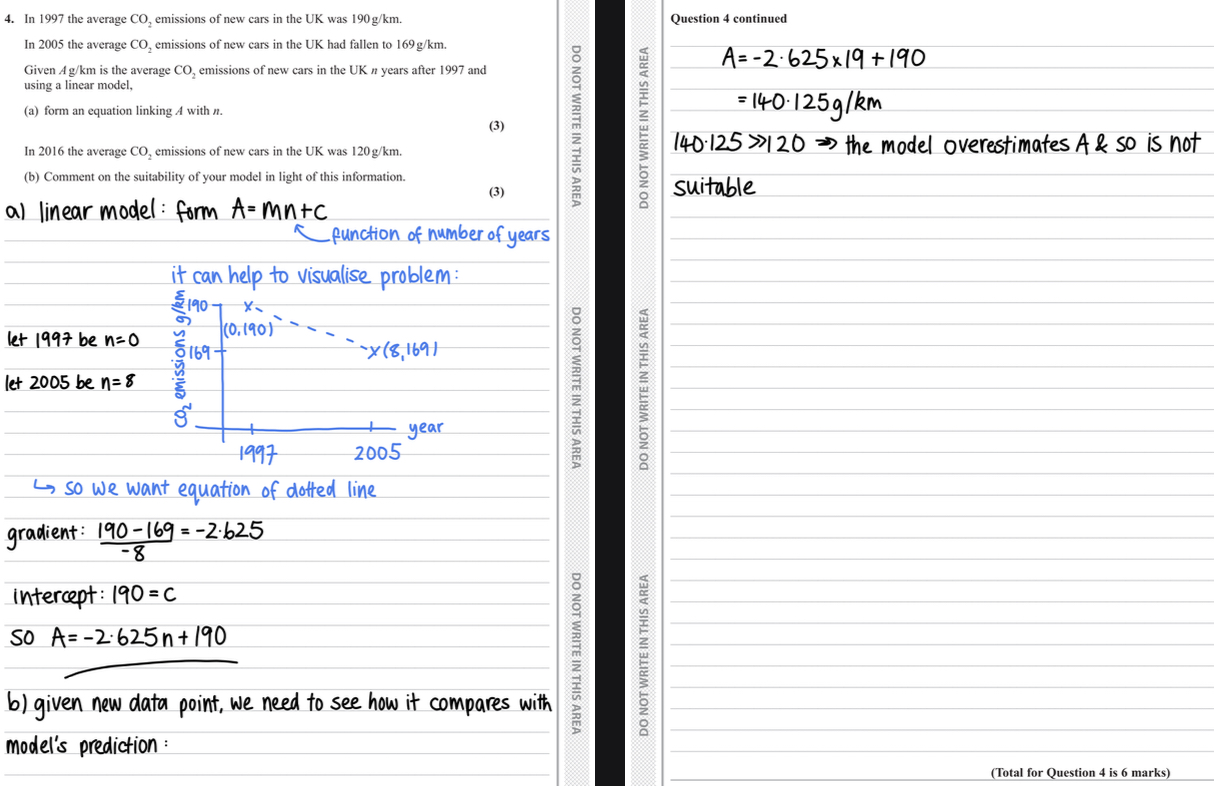 4. In 1997 the average CO₂ emissions of new cars in the UK was 190 g/km.
In 2005 the average CO₂ emissions of new cars in the UK had fallen to 169 g/km.
Given A g/km is the average CO₂ emissions of new cars in the UK n years after 1997 and
using a linear model,
(a) form an equation linking A with n.
(3)
In 2016 the average CO₂ emissions of new cars in the UK was 120 g/km.
(b) Comment on the suitability of your model in light of this information.
(3)
a) linear model: form A=mn+c
function of number of years
it can help to visualise problem:
CO₂ emissions g/km
190
(0,190)
let 1997 be n=0
169
(8,169)
let 2005 be n=8
year
1997 2005
↳ so we want equation of dotted line
gradient: (190-169)/-8 = -2·625
intercept: 190 = c
so A= -2·625n+190
b) given new data point, we need to see how it compares with
model's prediction:
DO NOT WRITE IN THIS AREA
DO NOT WRITE IN THIS AREA
DO NOT WRITE IN THIS AREA
DO NOT WRITE IN THIS AREA
DO NOT WRITE IN THIS AREA
DO NOT WRITE IN THIS AREA
Question 4 continued
A= -2·625×19+190
= 140·125g/km
140·125 >> 120 ⇒ the model overestimates A & so is not
suitable
(Total for Question 4 is 6 marks)